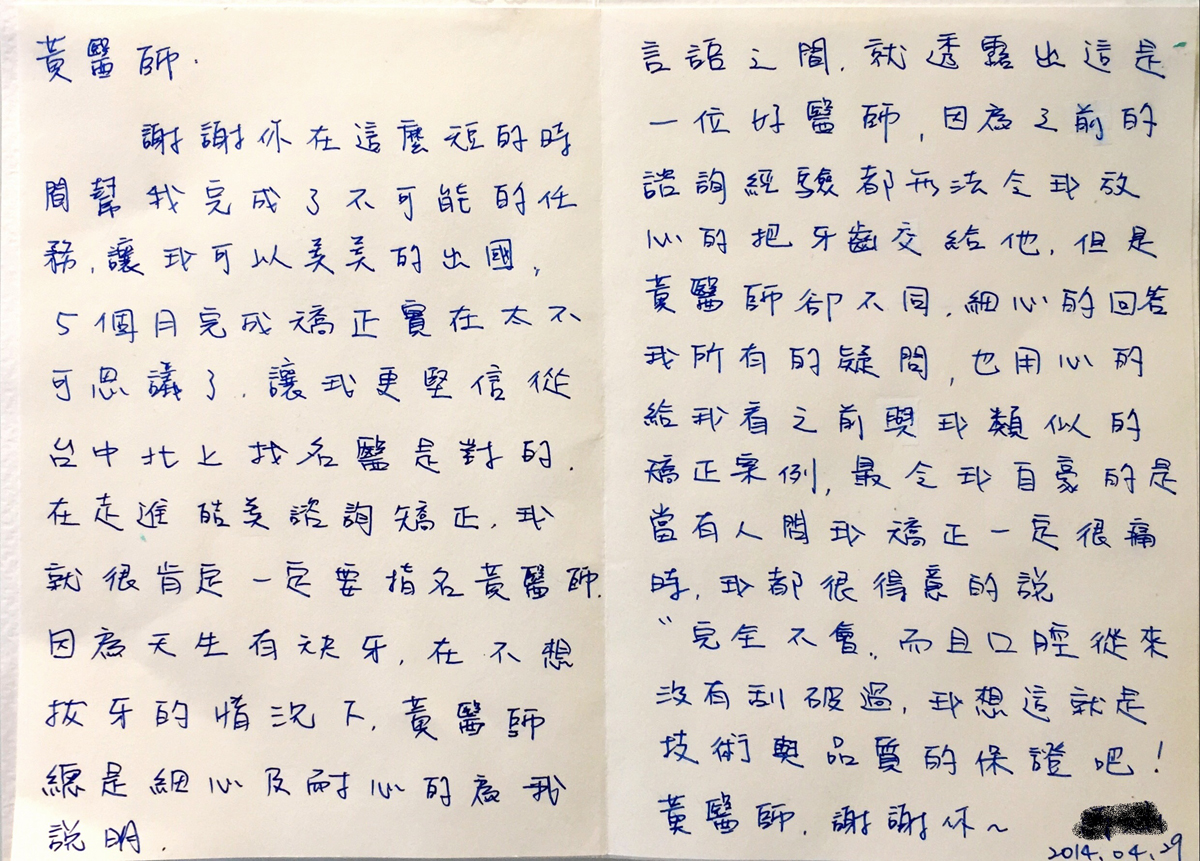 黃醫師.
謝謝你在這麼短的時
間幫我完成了不可能的任
務,讓我可以美美的出國,
5個月完成矯正實在太不
可思議了,讓我更堅信從
台中北上找名醫是對的.
在走進皓美諮詢矯正,我
就很肯定一定要指名黃醫師.
因為天生有缺牙,在不想
拔牙的情況下,黃醫師
總是細心及耐心的為我
說明.
言語之間,就透露出這是
一位好醫師,因為之前的
諮詢經驗都無法令我放
心的把牙齒交給他,但是
黃醫師卻不同,細心的回答
我所有的疑問,也用心的
給我看之前與我類似的
矯正案例,最令我自豪的是
當有人問我矯正一定很痛
時,我都很得意的說
"完全不會,而且口腔從來
沒有刮破過,我想這就是
技術與品質的保證吧!
黃醫師,謝謝你~
2014.04.29